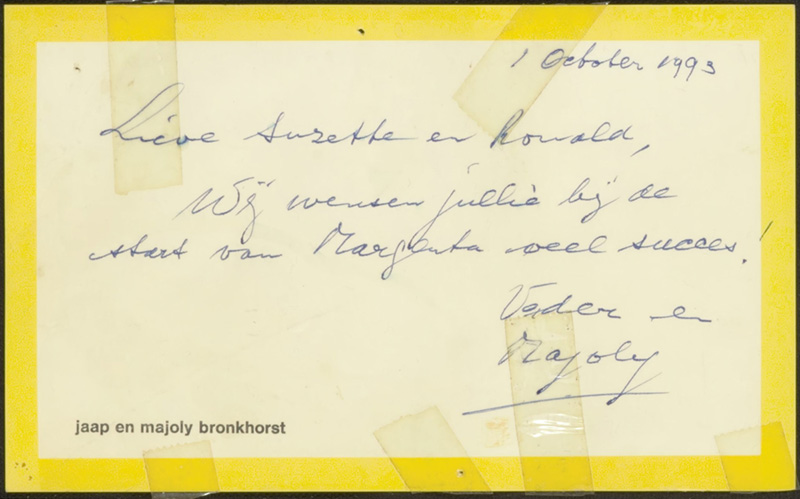 1 October 1993
Lieve Suzette en Ronald,
Wij wensen jullie bij de
start van Margenta veel succes!
Vader en
Majoly
jaap en majoly bronkhorst